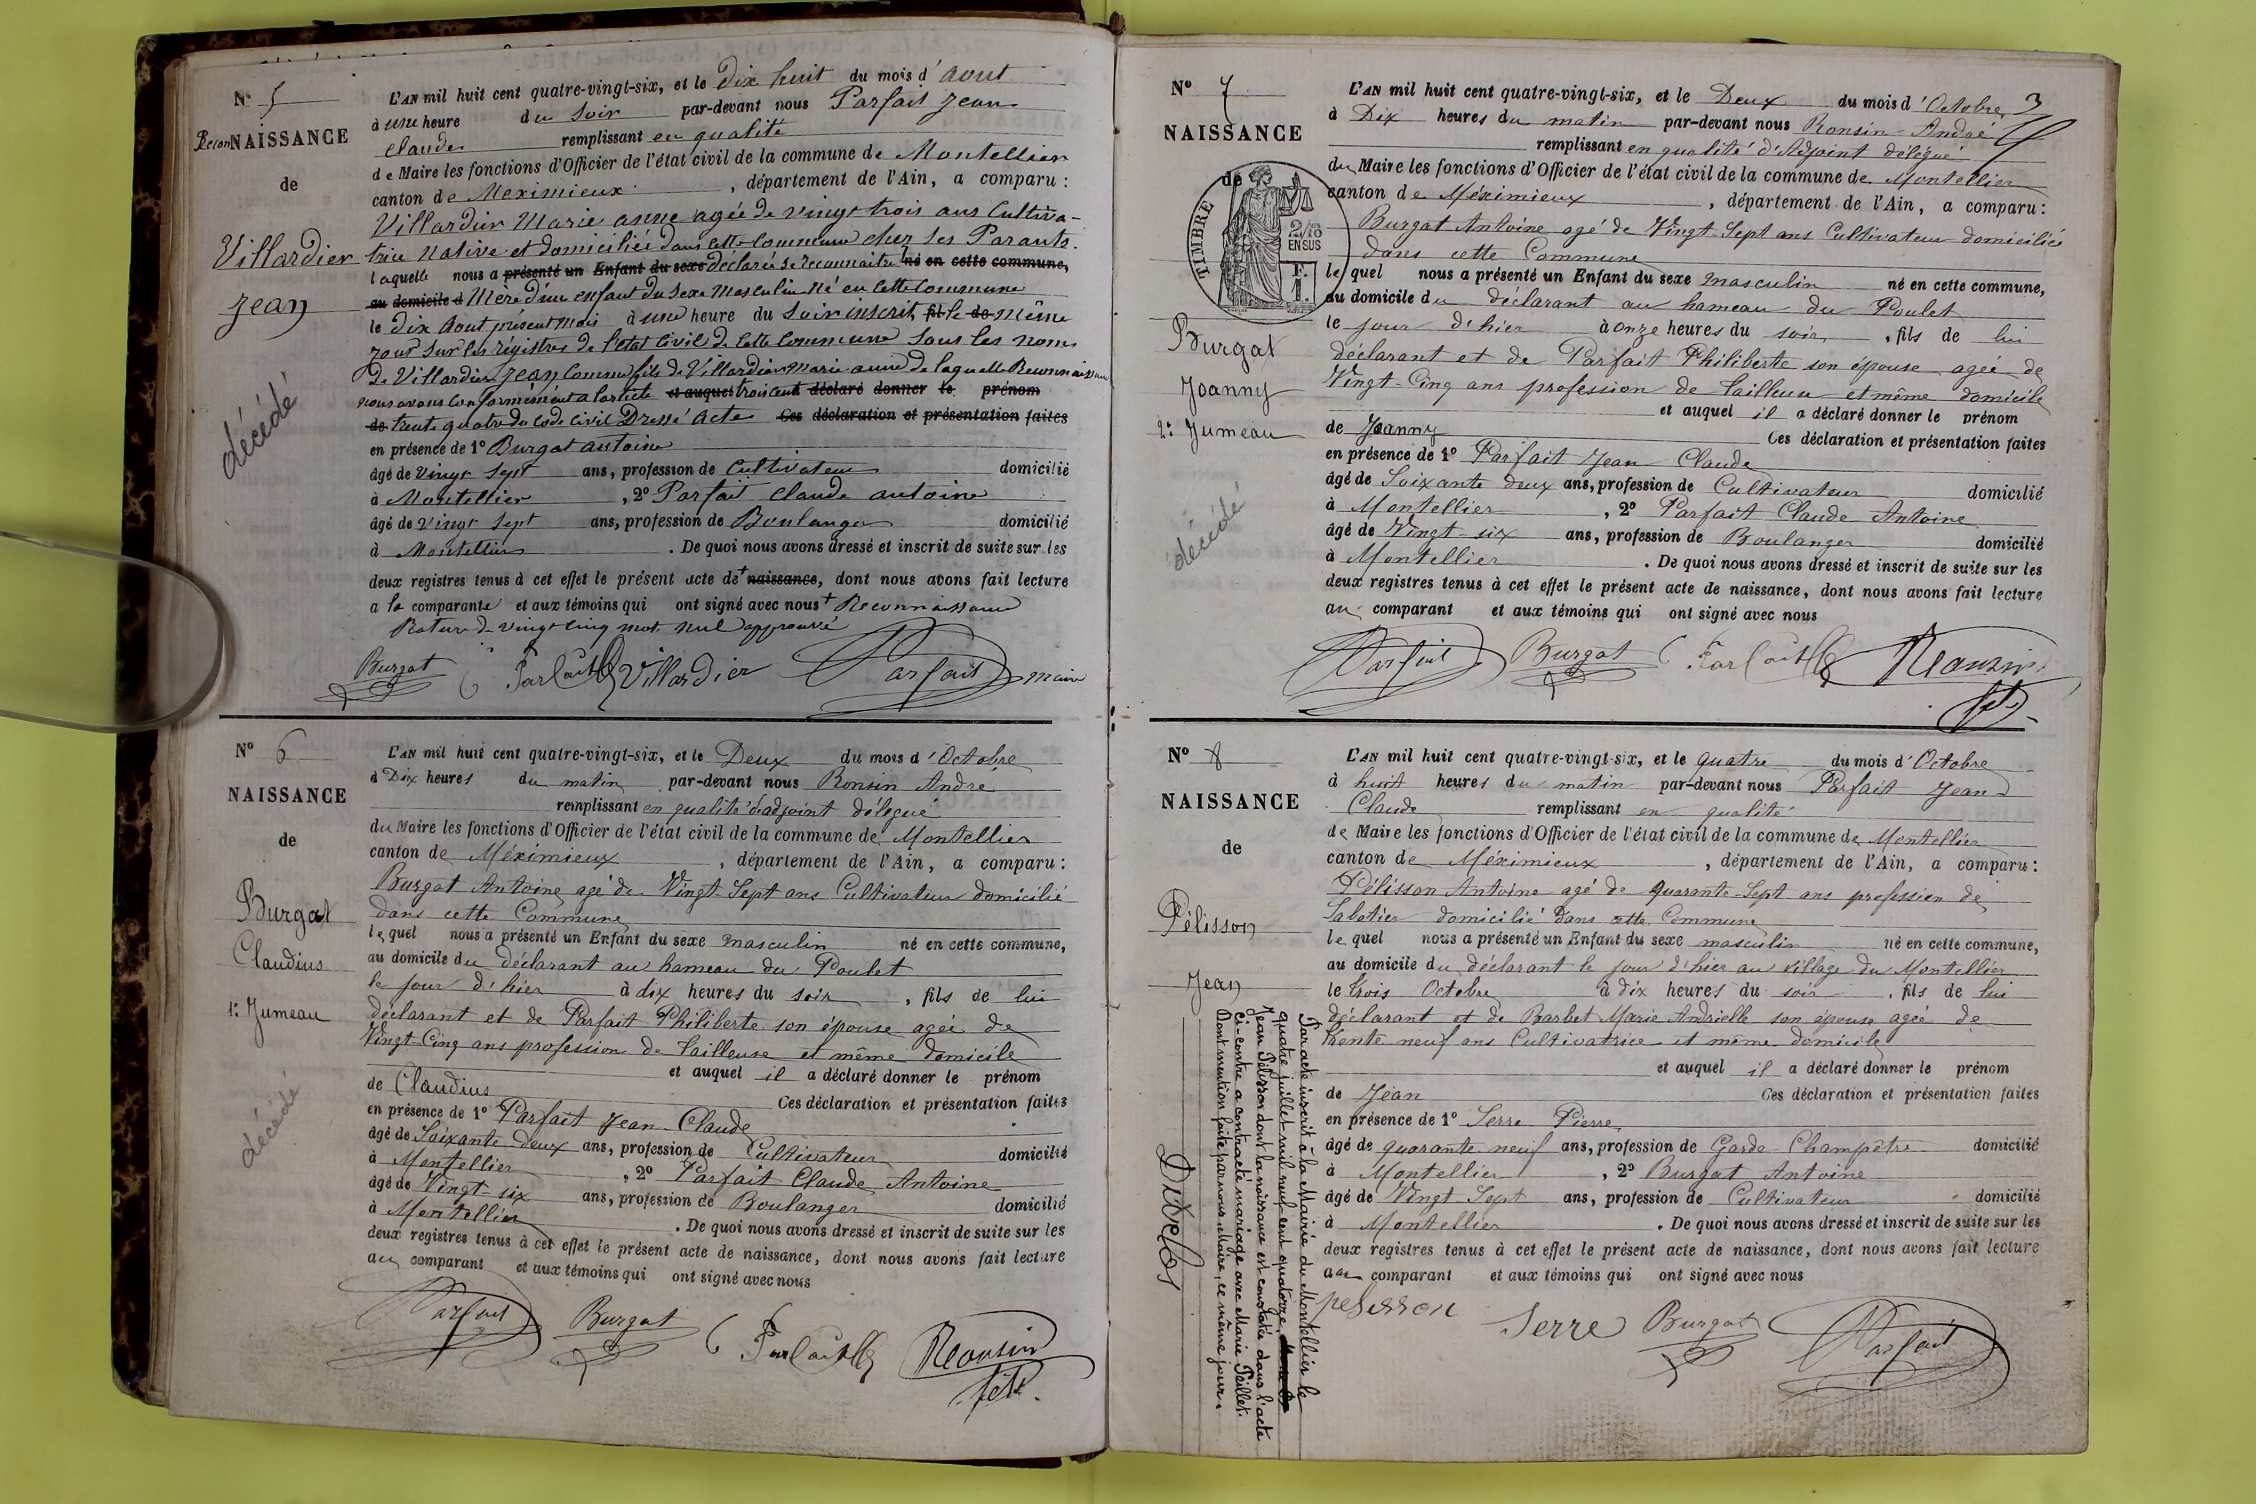 N° 5
ReconNAISSANCE
de
Villardier
Jean
décédé
L'AN mil huit cent quatre-vingt-six, et le Dix huit du mois d'aout
à une heure du soir par-devant nous Parfait Jean
Claude remplissant en qualité
de Maire les fonctions d'Officier de l'état civil de la commune de Montellier
canton de Meximieux, département de l'Ain, a comparu :
Villardier Marie anne agée de vingt trois ans Cultiva-
trice Native et domiciliée dans cette Commune chez ses Parants.
laquelle nous a présenté un Enfant du sexe déclarée se Reconnaitre né en cette commune,
au domicile d Mère d'un enfant du sexe Masculin Né en cette Commune
le dix Aout présent mois à une heure du soir inscrit fil le de même
jour sur les régistres de l'état Civil de cette Commune sous les noms
de Villardier Jean Comme fils de Villardier Marie anne de laquelle Reconnaissance
nous avons Conformément a larticle et auquel trois cent déclaré donner le prénom
de trente quatre du Code Civil Dressé acte Ces déclaration et présentation faites
en présence de 1° Burgat antoine
âgé de vingt sept ans, profession de Cultivateur domicilié
à Montellier, 2° Parfait Claude antoine
âgé de vingt sept ans, profession de Boulanger domicilié
à Montellier. De quoi nous avons dressé et inscrit de suite sur les
deux registres tenus à cet effet le présent acte de + naissance, dont nous avons fait lecture
a la comparante et aux témoins qui ont signé avec nous + Reconnaissance
Rature de vingt cinq mot Nul approuvé
Burgat Villardier Parfait maire
N° 6
NAISSANCE
de
Burgat
Claudius
1er Jumeau
décédé
L'AN mil huit cent quatre-vingt-six, et le Deux du mois d'Octobre
à Dix heures du matin par-devant nous Ronsin André
remplissant en qualité d'adjoint délegué
du Maire les fonctions d'Officier de l'état civil de la commune de Montellier
canton de Méximieux, département de l'Ain, a comparu :
Burgat Antoine agé de Vingt-Sept ans Cultivateur domicilié
dans cette Commune
lequel nous a présenté un Enfant du sexe masculin né en cette commune,
au domicile du déclarant au hameau du Poulet
le jour d'hier à dix heures du soir, fils de lui
déclarant et de Parfait Philiberte son épouse agée de
Vingt-Cinq ans profession de Tailleuse et même domicile
et auquel il a déclaré donner le prénom
de Claudius Ces déclaration et présentation faites
en présence de 1° Parfait Jean Claude
âgé de Soixante deux ans, profession de Cultivateur domicilié
à Montellier, 2° Parfait Claude Antoine
âgé de Vingt-six ans, profession de Boulanger domicilié
à Montellier. De quoi nous avons dressé et inscrit de suite sur les
deux registres tenus à cet effet le présent acte de naissance, dont nous avons fait lecture
au comparant et aux témoins qui ont signé avec nous
Parfait Burgat Ronsin
3
N° 7
NAISSANCE
de
TIMBRE
2/10
EN SUS
Burgat
Joanny
2e Jumeau
décédé
L'AN mil huit cent quatre-vingt-six, et le Deux du mois d'Octobre
à Dix heures du matin par-devant nous Ronsin-André
remplissant en qualité d'Adjoint délégué
du Maire les fonctions d'Officier de l'état civil de la commune de Montellier
canton de Méximieux, département de l'Ain, a comparu :
Burgat Antoine agé de Vingt-Sept ans Cultivateur domicilié
dans cette Commune
lequel nous a présenté un Enfant du sexe masculin né en cette commune,
au domicile du déclarant au hameau du Poulet
le jour d'hier à onze heures du soir, fils de lui
déclarant et de Parfait Philiberte son épouse agée de
Vingt-Cinq ans profession de Tailleuse et même domicile
et auquel il a déclaré donner le prénom
de Joanny Ces déclaration et présentation faites
en présence de 1° Parfait Jean Claude
âgé de Soixante deux ans, profession de Cultivateur domicilié
à Montellier, 2° Parfait Claude Antoine
âgé de Vingt-six ans, profession de Boulanger domicilié
à Montellier. De quoi nous avons dressé et inscrit de suite sur les
deux registres tenus à cet effet le présent acte de naissance, dont nous avons fait lecture
au comparant et aux témoins qui ont signé avec nous
Parfait Burgat Ronsin
N° 8
NAISSANCE
de
Pélisson
Jean
Par acte inscrit à la Mairie du Montellier le
quatre juillet mil neuf cent quatorze,
Jean Pélisson dont la naissance est constatée dans l'acte
ci-contre a contracté mariage avec Marie Peillet.
Dont mention faite par nous, Maire, ce même jour.
L'AN mil huit cent quatre-vingt-six, et le quatre du mois d'Octobre
à huit heures du matin par-devant nous Parfait Jean
Claude remplissant en qualité
de Maire les fonctions d'Officier de l'état civil de la commune de Montellier
canton de Méximieux, département de l'Ain, a comparu :
Pélisson Antoine agé de quarante-Sept ans profession de
Sabotier domicilié dans cette Commune
lequel nous a présenté un Enfant du sexe masculin né en cette commune,
au domicile du déclarant le jour d'hier au village du Montellier
le trois Octobre à dix heures du soir, fils de lui
déclarant et de Barbet Marie Andrielle son épouse agée de
trente neuf ans Cultivatrice et même domicile
et auquel il a déclaré donner le prénom
de Jean Ces déclaration et présentation faites
en présence de 1° Serre Pierre
âgé de quarante neuf ans, profession de Garde-Champêtre domicilié
à Montellier, 2° Burgat Antoine
âgé de Vingt Sept ans, profession de Cultivateur domicilié
à Montellier. De quoi nous avons dressé et inscrit de suite sur les
deux registres tenus à cet effet le présent acte de naissance, dont nous avons fait lecture
au comparant et aux témoins qui ont signé avec nous
pelisson Serre Burgat Parfait